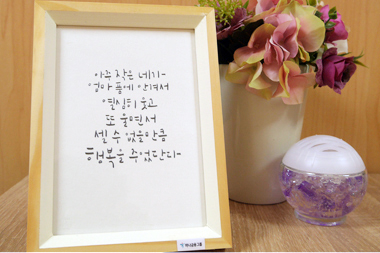 아주 작은 네가
엄마 품에 안겨서
열심히 웃고
또 울면서
셀 수 없을만큼
행복을 주었단다